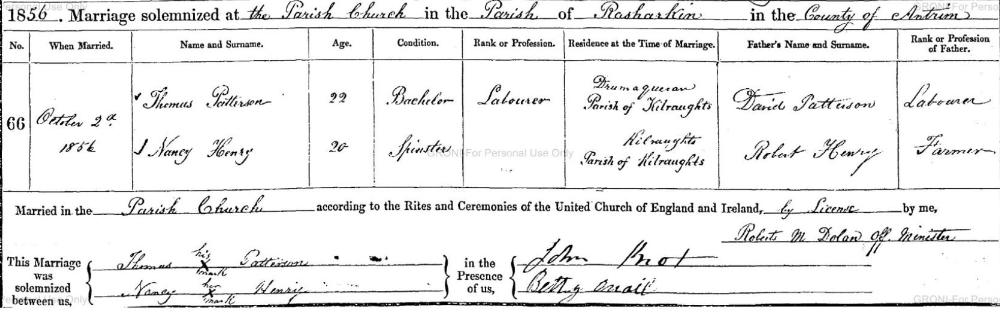 1856. Marriage solemnized at the Parish Church in the Parish of Rasharkin in the County of Antrim
No. When Married. Name and Surname. Age. Condition. Rank or Profession. Residence at the Time of Marriage. Father's Name and Surname. Rank or Profession of Father.
66 October 2d 1856 Thomas Patterson 22 Bachelor Labourer Drumaqueran Parish of Kilraughts David Patterson Labourer
Nancy Henry 20 Spinster Kilraughts Parish of Kilraughts Robert Henry Farmer
Married in the Parish Church according to the Rites and Ceremonies of the United Church of England and Ireland, by License by me,
Robert M Dolan Off. Minister
This Marriage was solemnized between us, Thomas his x mark Patterson in the Presence of us, John Knox
Nancy her x mark Henry Betty
GRONI-For Personal Use Only